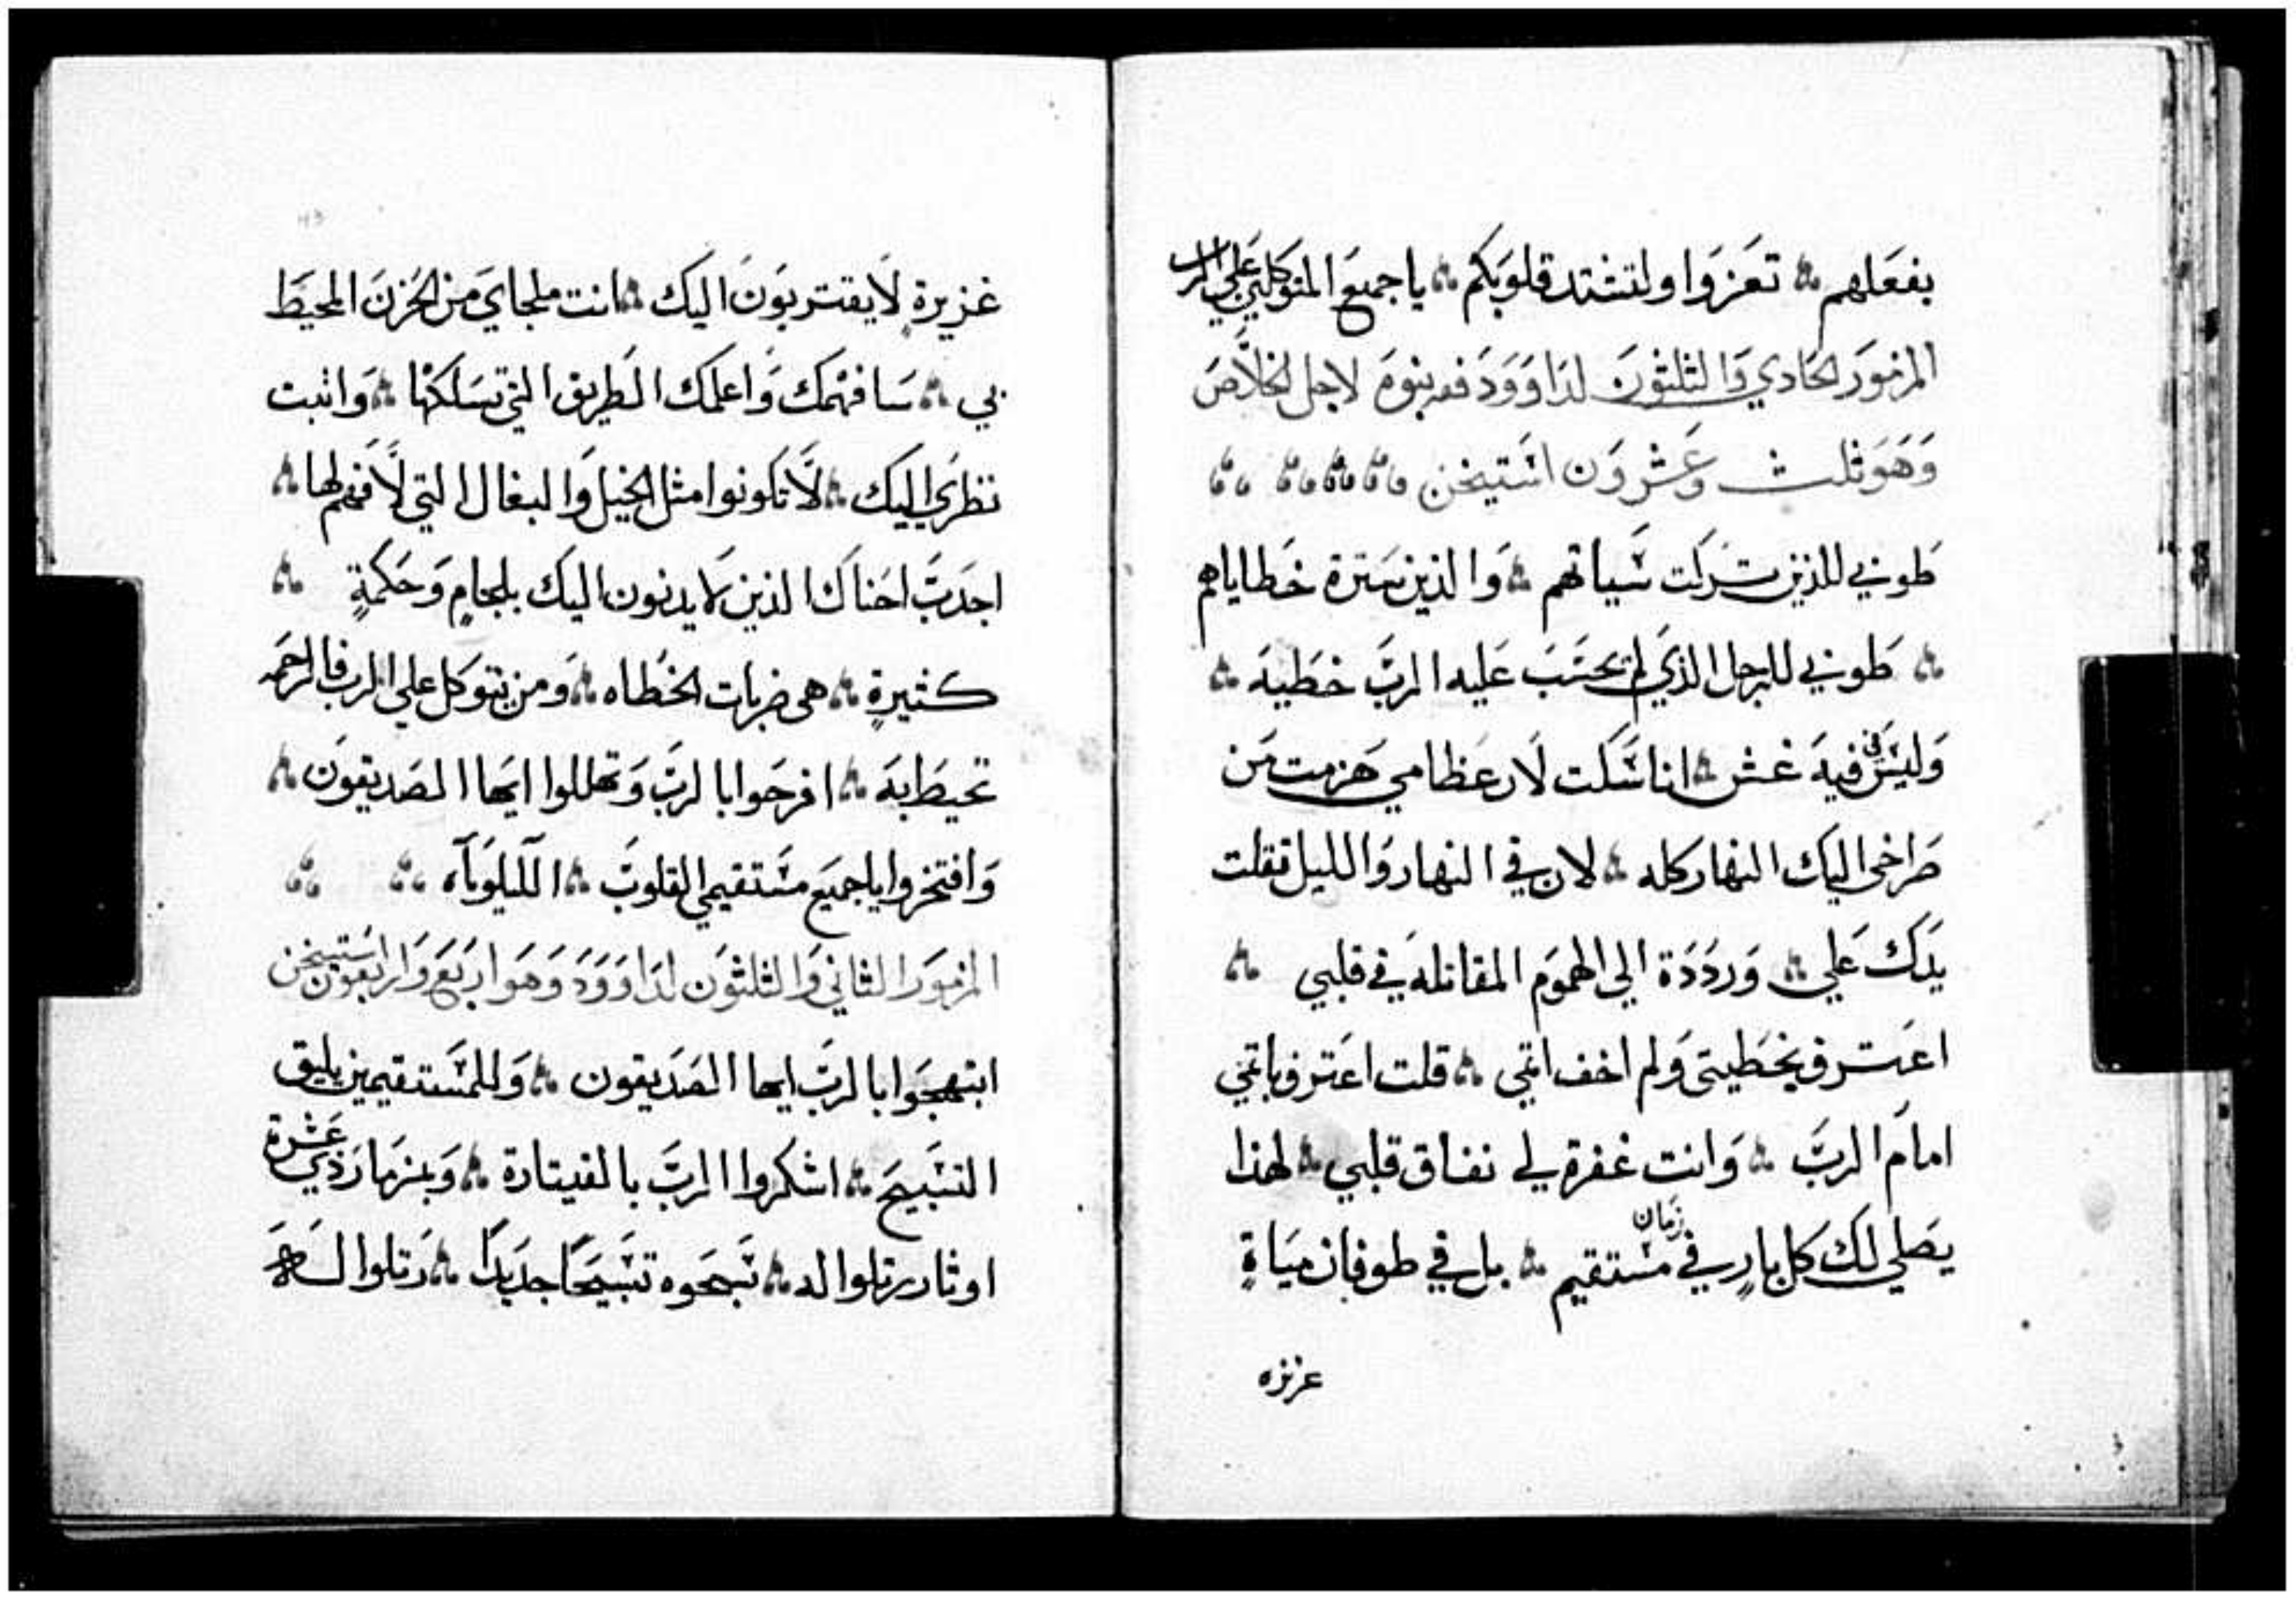 بفعلهم ؞ تعزوا ولتشتد قلوبكم ؞ يا جميع المتوكلين على الرب
المزمور الحادي والثلثون لداوود فهو بنوة لاجل الخلاص
وهو ثلث وعشرون استيخن
طوبي للذين تركت سياتهم ؞ والذين سترة خطاياهم
؞ طوبي للرجل الذي لم يحتسب عليه الرب خطية ؞
وليس في فيه غش ؞ انا سكت لان عظامي هزمت من
صراخي اليك النهار كله ؞ لان في النهار والليل ثقلت
يدك علي ؞ ورددة الي الهموم المقاتله في قلبي ؞
اعترف بخطيتي ولم اخف اثمي ؞ قلت اعترف باثمي
امام الرب ؞ وانت غفرة لي نفاق قلبي ؞ لهذا
يصلي لك كل بار في زمان مستقيم ؞ بل في طوفان مياة
غزيره
غزيرة لا يقتربون اليك ؞ انت ملجاي من الحزن المحيط
بي ؞ سافهمك واعلمك الطريق التي تسلكها ؞ واثبت
نظري اليك ؞ لا تكونوا مثل الخيل والبغال التي لا فهم لها ؞
اجدب احناك الذين لا يدنون اليك بلجام وحكمة ؞
كثيرة ؞ هي ضربات الخطاه ؞ ومن يتوكل علي الرب فالرحمه
تحيط به ؞ افرحوا بالرب وتهللوا ايها الصديقون ؞
وافتخروا يا جميع مستقيمي القلوب ؞ الليلويآه
المزمور الثاني والثلثون لداوود وهو اربع واربعون استيخن
ابتهجوا بالرب ايها الصديقون ؞ وللمستقيمين يليق
التسبيح ؞ اشكروا الرب بالقيتارة ؞ وبمزمار ذي عشرة
اوتار رتلوا له ؞ سبحوه تسبيحا جديدا ؞ رتلوا له